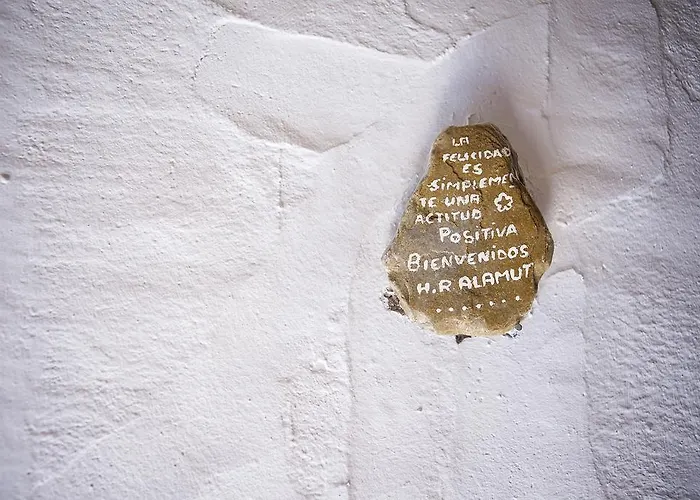 LA
FELICIDAD
ES
SIMPLEMEN
TE UNA
ACTITUD
POSITIVA
BIENVENIDOS
H.R ALAMUT
........